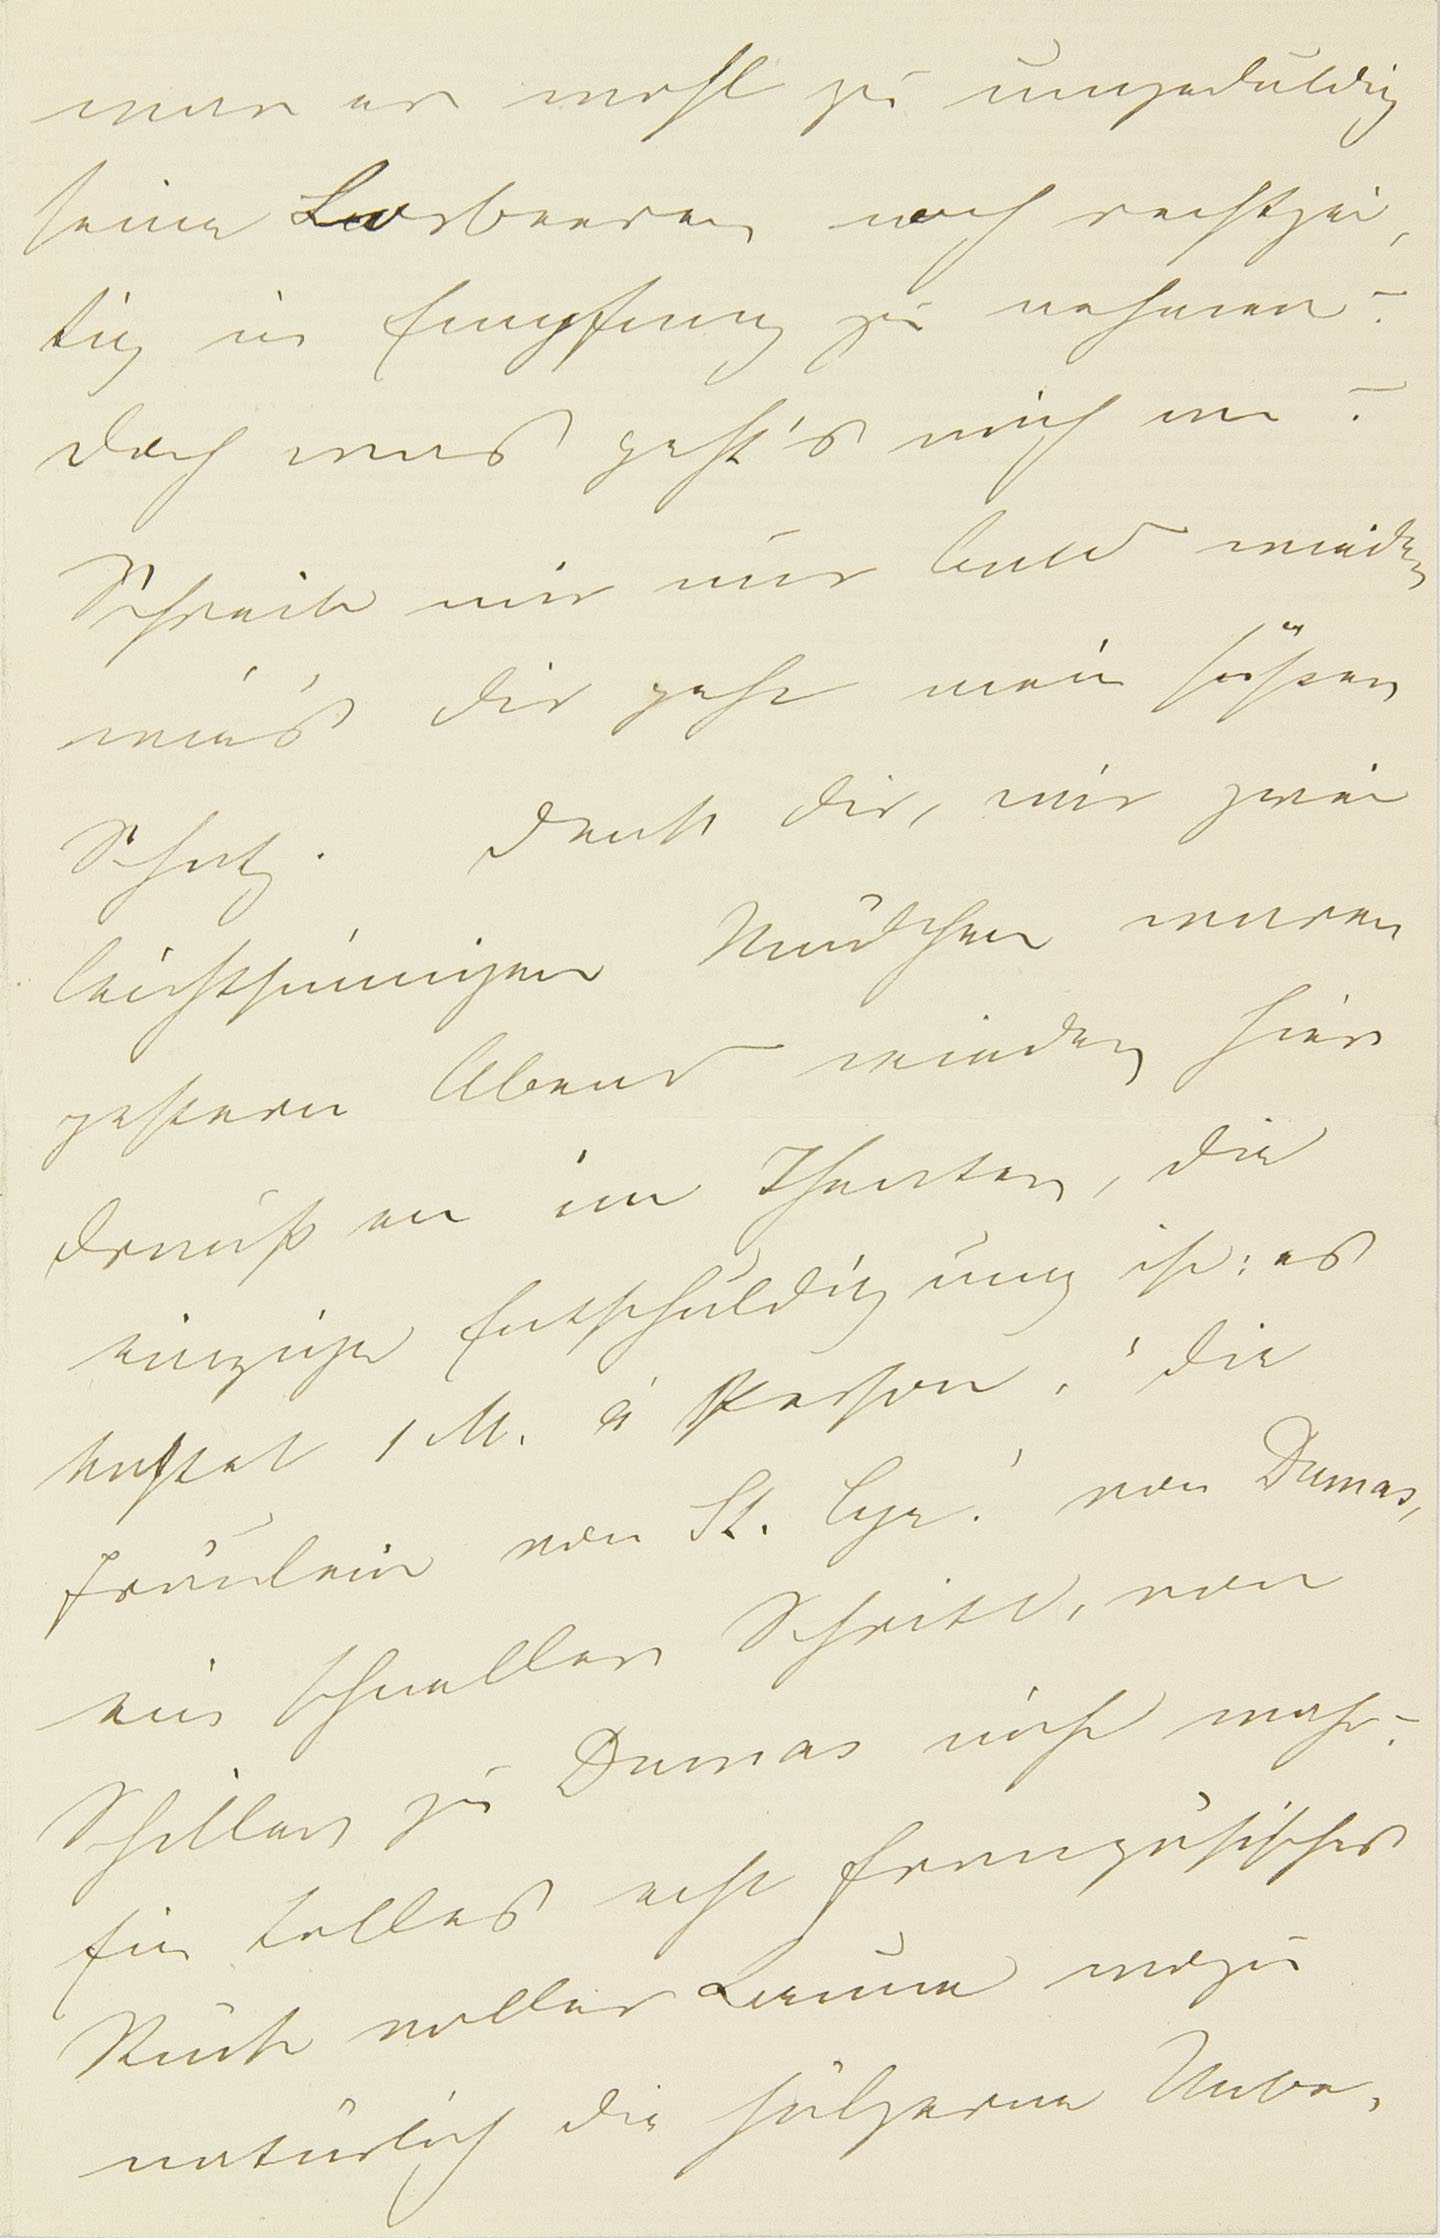 war er wohl zu ungeduldig
seine Lorbeeren noch rechtzei-
tig in Empfang zu nehmen?
Doch was geht's mich an?
Schreibe mir nur bald wieder
wie's Dir geht mein süßer
Schatz. Denk Dir, wir zwei
leichtsinnigen Mädchen waren
gestern Abend wieder hier
draußen im Theater, die
einzige Entschuldigung ist: es
kostet 1 M. à Person. "Die
Fräulein von St. Cyr." von Dumas,
ein schneller Schritt, von
Schiller zu Dumas nicht wahr?
Ein tolles echt französisches
Stück voller Laune wozu
natürlich die hölzerne Unbe-